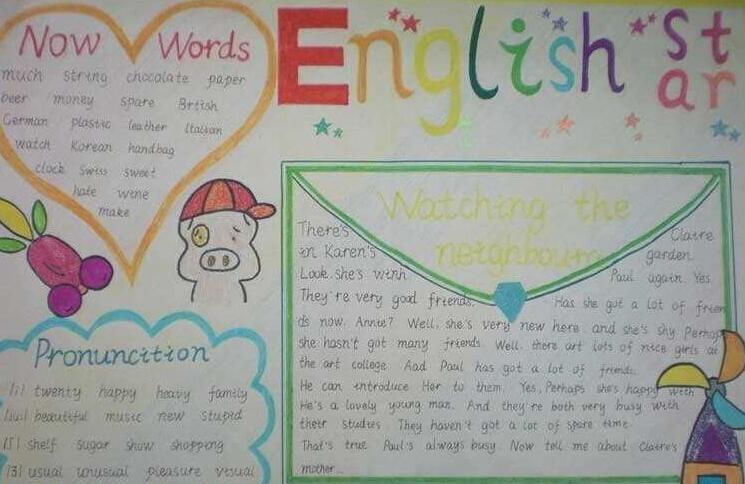 Now Words
much string chocolate paper
beer money spare Brtish
German plastic leather Italian
watch Korean handbag
clock Swiss sweet
hate wine
make
English star
Pronuncition
/i/ twenty happy heavy family
/ju:/ beautiful music new stupid
/ʃ/ shelf sugar show shopping
/ʒ/ usual unusual pleasure visual
Watching the
neighbours
There's Claire
in Karen's garden
Look. she's winh Paul again. Yes
They're very good friends. Has she got a lot of frien
ds now. Annie? Well, she's very new here. and she's shy. Perhap
she hasn't got many friends. Well. there art lots of nice girls at
the art college. Aad Paul has got a lot of friends.
He can introduce Her to them. Yes, Perhaps she's happy with
He's a lovely young man. And they're both very busy with
their studies. They haven't got a lot of spare time.
That's true. Paul's always busy. Now tell me about Claire's
mother...